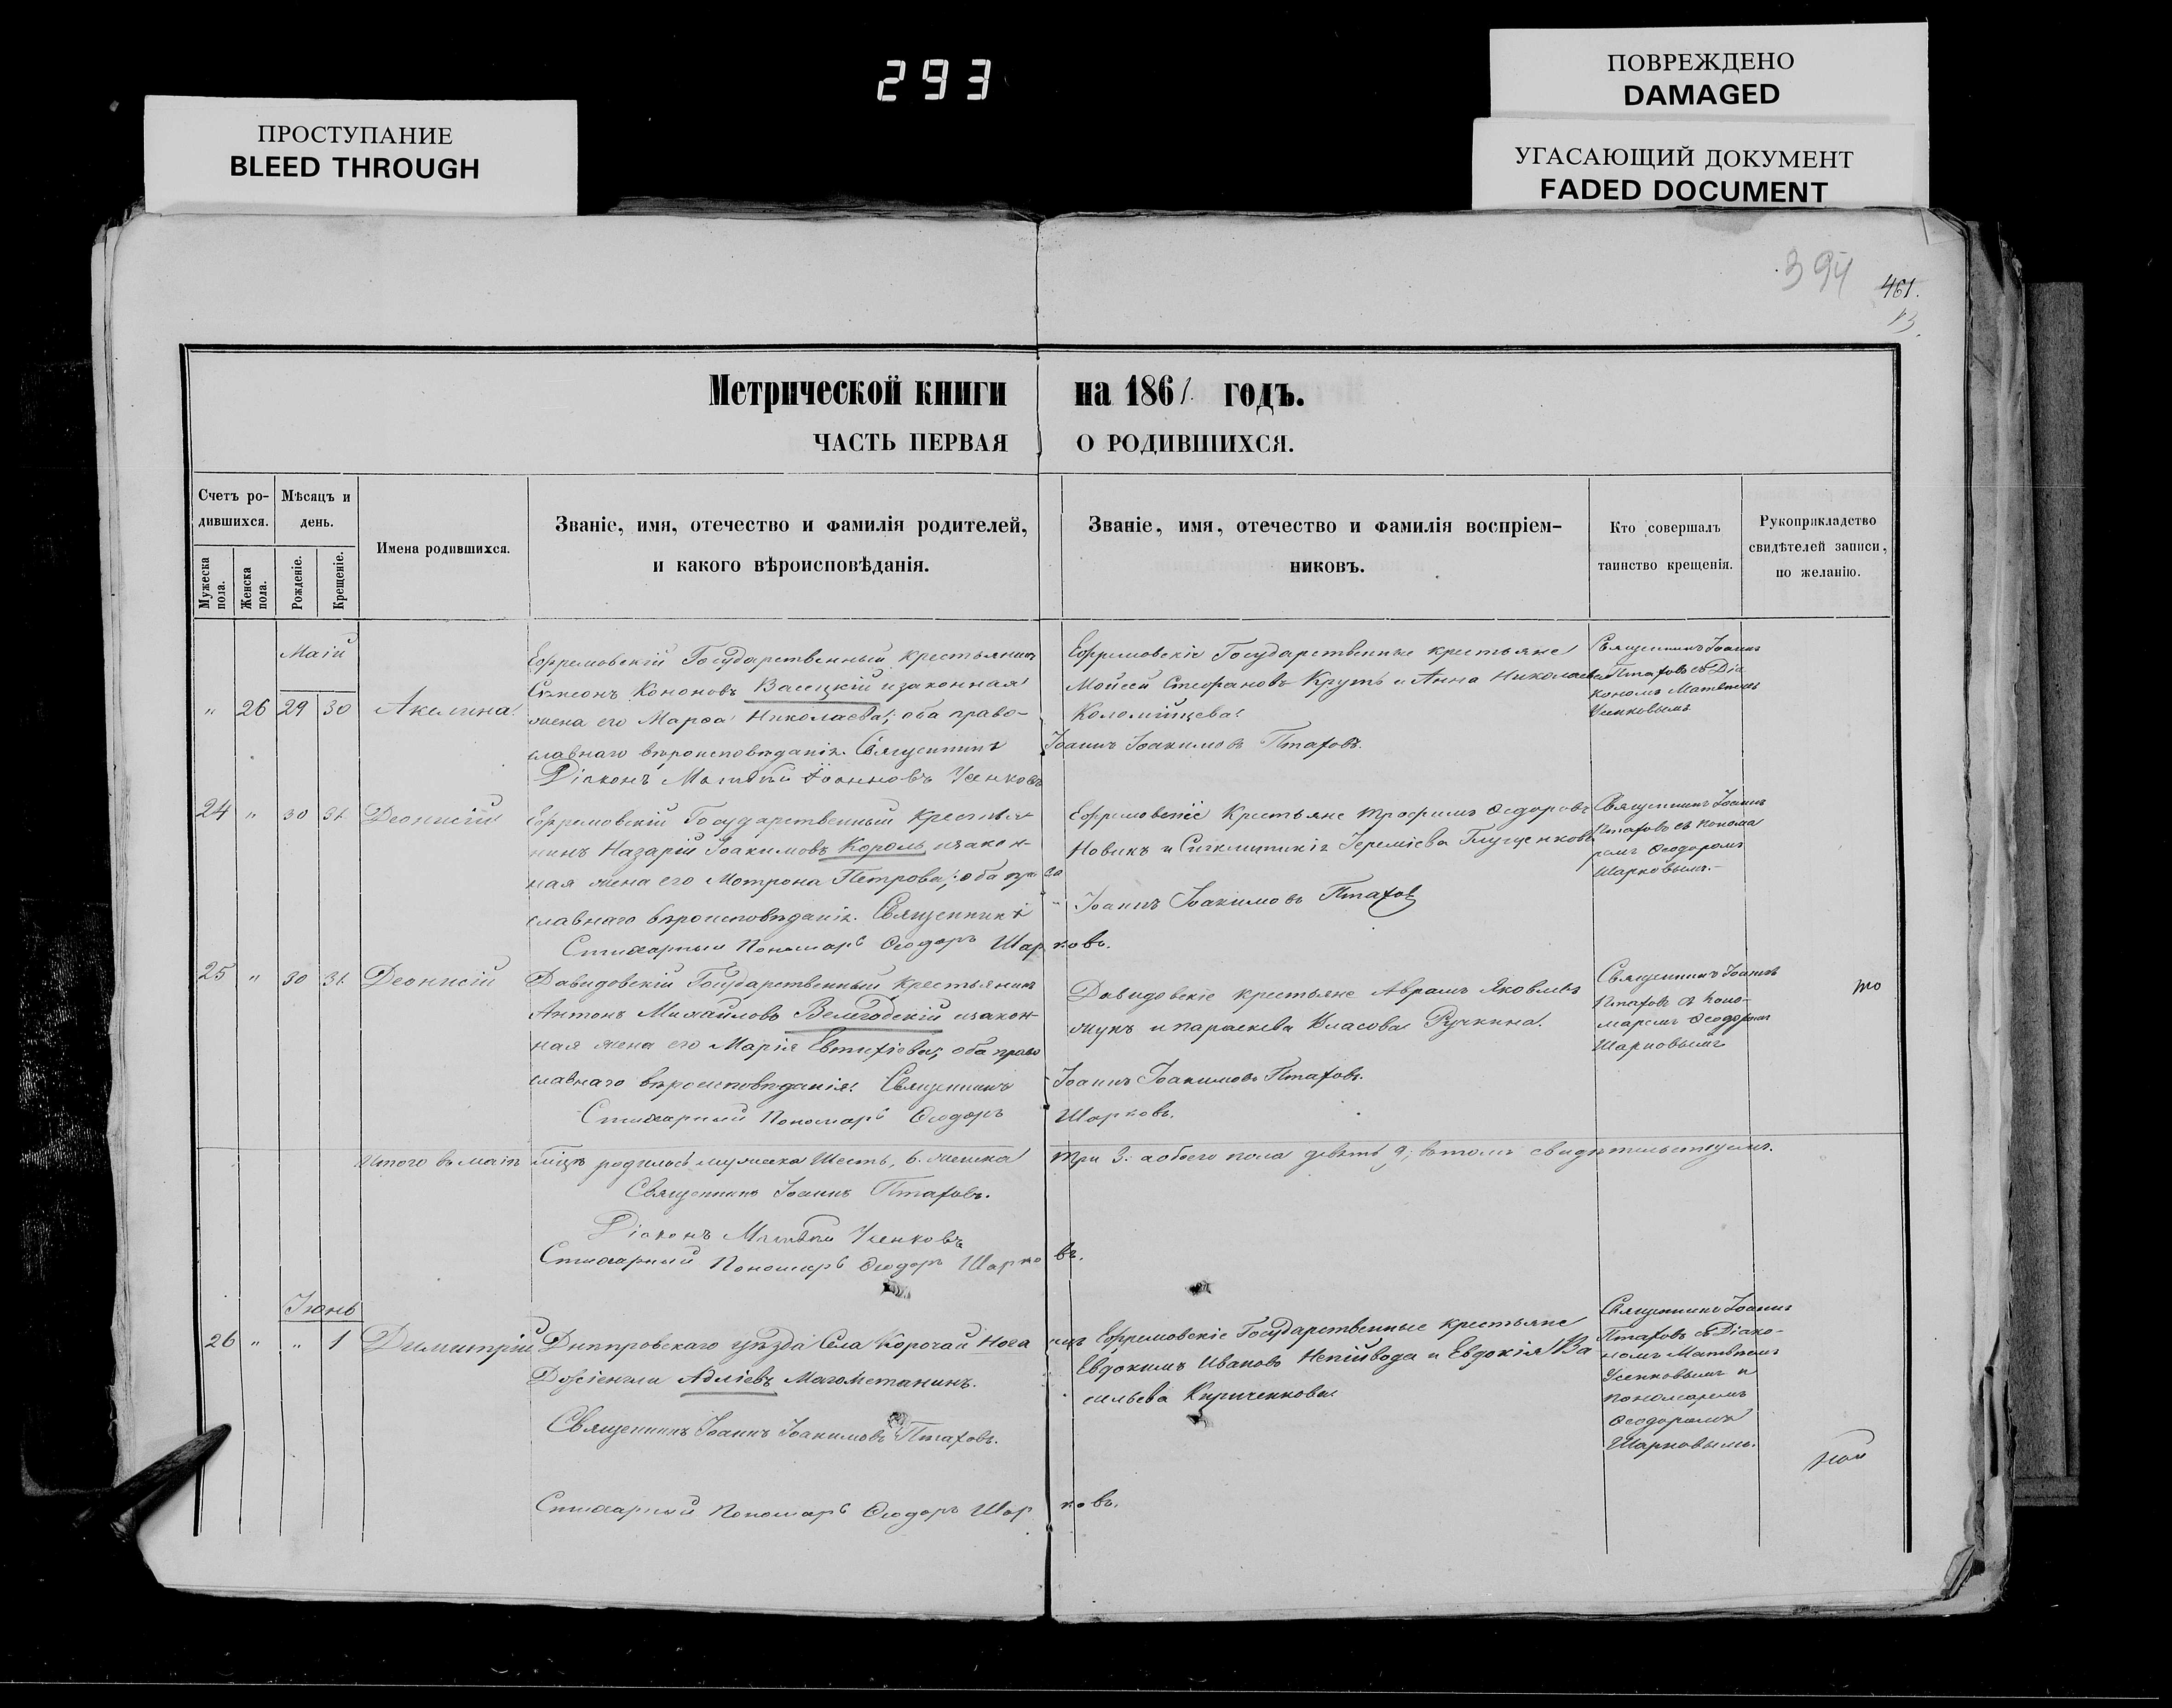 293
ПОВРЕЖДЕНО
DAMAGED
ПРОСТУПАНИЕ
BLEED THROUGH
УГАСАЮЩИЙ ДОКУМЕНТ
FADED DOCUMENT
394
461.
Метрической книги на 1861. годъ.
ЧАСТЬ ПЕРВАЯ О РОДИВШИХСЯ.
Счетъ ро-
дившихся.
Мужеска
пола.
Женска
пола.
Мѣсяцъ и
день.
Рожденіе.
Крещеніе.
Имена родившихся.
Званіе, имя, отечество и фамилія родителей,
и какого вѣроисповѣданія.
Званіе, имя, отечество и фамилія воспріем-
никовъ.
Кто совершалъ
таинство крещенія.
Рукоприкладство
свидѣтелей записи,
по желанію.
Маій
" 26 29 30 Акилина
Ефремовскій Государственный крестьянинъ
Сѵмеонъ Кононовъ Васецкій и законная
жена его Марѳа Николаева; оба право-
славнаго вѣроисповѣданія. Священникъ
Діаконъ Матвѣй Іоанновъ Усенковъ
Ефремовскіе Государственные крестьяне
Мойсей Стефановъ Крутъ и Анна Николаева
Коломійцева
Іоаннъ Іоакимовъ Птаховъ.
Священникъ Іоаннъ
Птаховъ съ Діа
кономъ Матвѣемъ
Усенковымъ
24 " 30 31. Деонисій
Ефремовскій Государственный крестья-
нинъ Назарій Іоакимовъ Король и закон-
ная жена его Мотрона Петрова; оба пра во
славнаго вѣроисповѣданія. Священникъ
Стихарный Пономарь Ѳеодоръ Шар ковъ.
Ефремовскіе Крестьяне Трофимъ Ѳедоровъ
Новикъ и Сигклитикія Іереміева Глущенкова
Іоаннъ Іоакимовъ Птахов
Священникъ Іоаннъ
Птаховъ съ понома
ремъ Ѳеодоромъ
Шарковымъ.-
25 " 30 31. Деонисій
Давидовскій Государственный крестьянинъ
Антонъ Михайловъ Велегодскій и закон-
ная жена его Марія Евтихіева; оба право
славнаго вѣроисповѣданія. Священникъ
Стихарный Пономарь Ѳеодоръ
Давидовскіе крестьяне Аврамъ Яковлевъ
и параскева Власова Ручкина.
Іоаннъ Іоакимовъ Птаховъ.
Шарковъ.
Священникъ Іоаннъ
Птаховъ съ поно-
маремъ Ѳеодоромъ
Шарковымъ
Итого въ маіѣ мѣцѣ родилось мужеска Шесть, 6. женска три 3. а обоего пола девять 9; въ томъ свидѣтельствуемъ.
Священникъ Іоаннъ Птаховъ.
Діаконъ Матвѣй Усенковъ
Стихарный Пономарь Ѳеодоръ Шарко въ.
Іюнь
26 " " 1 Димитрій
Днѣпровскаго уѣзда Села Корочай Нога ецъ
Адліевъ Магометанинъ.
Священникъ Іоаннъ Іоакимовъ Птаховъ.
Стихарный Пономарь Ѳеодоръ Шар ковъ.
Ефремовскіе Государственные крестьяне
Евдокимъ Ивановъ Непійвода и Евдокія Ва
сильева Кириченкова
Священникъ Іоаннъ
Птаховъ съ Діако-
номъ Матвѣемъ
Усенковымъ и
пономаремъ
Ѳеодоромъ
Шарковымъ.